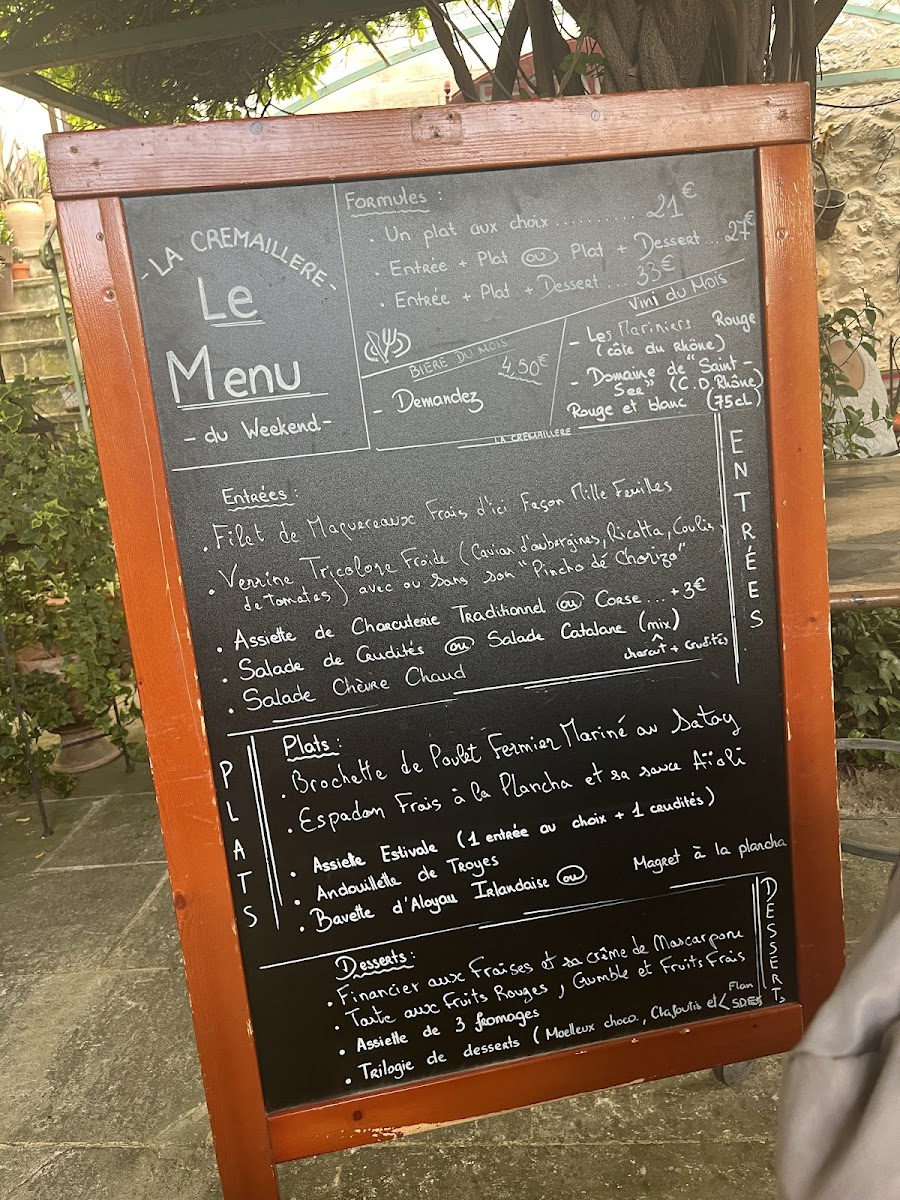 - LA CREMAILLERE -
Le
Menu
- du Weekend -
Formules :
. Un plat aux choix .......... 21€
. Entrée + Plat ou Plat + Dessert... 27€
. Entrée + Plat + Dessert ... 33€
BIERE DU MOIS
4,50€
- Demandez
Vini du Mois
- Les Mariniers Rouge
(côte du Rhône)
- Domaine de "Saint-
Ser" (C.D.Rhône)
Rouge et blanc (75cl)
LA CREMAILLERE
ENTRÉES
Entrées :
. Filet de Maquereaux Frais d'ici Façon Mille Feuilles
. Verrine Tricolore Froide (Caviar d'aubergines, Ricotta, Coulis
de tomates) avec ou sans son "Pincho dé Chorizo"
. Assiette de Charcuterie Traditionnel ou Corse ... +3€
. Salade de Crudités ou Salade Catalane (mix)
charcut + crudités
. Salade Chèvre Chaud
PLATS
Plats :
. Brochette de Poulet Fermier Mariné au Satay
. Espadon Frais à la Plancha et sa sauce Aïoli
. Assiette Estivale (1 entrée au choix + 1 crudités)
. Andouillette de Troyes
. Bavette d'Aloyau Irlandaise ou Magret à la plancha
DESSERTS
Desserts :
. Financier aux Fraises et sa crème de Mascarpone
. Tarte aux Fruits Rouges, Crumble et Fruits Frais
. Assiette de 3 fromages
. Trilogie de desserts (Moelleux choco., Clafoutis et < Flan